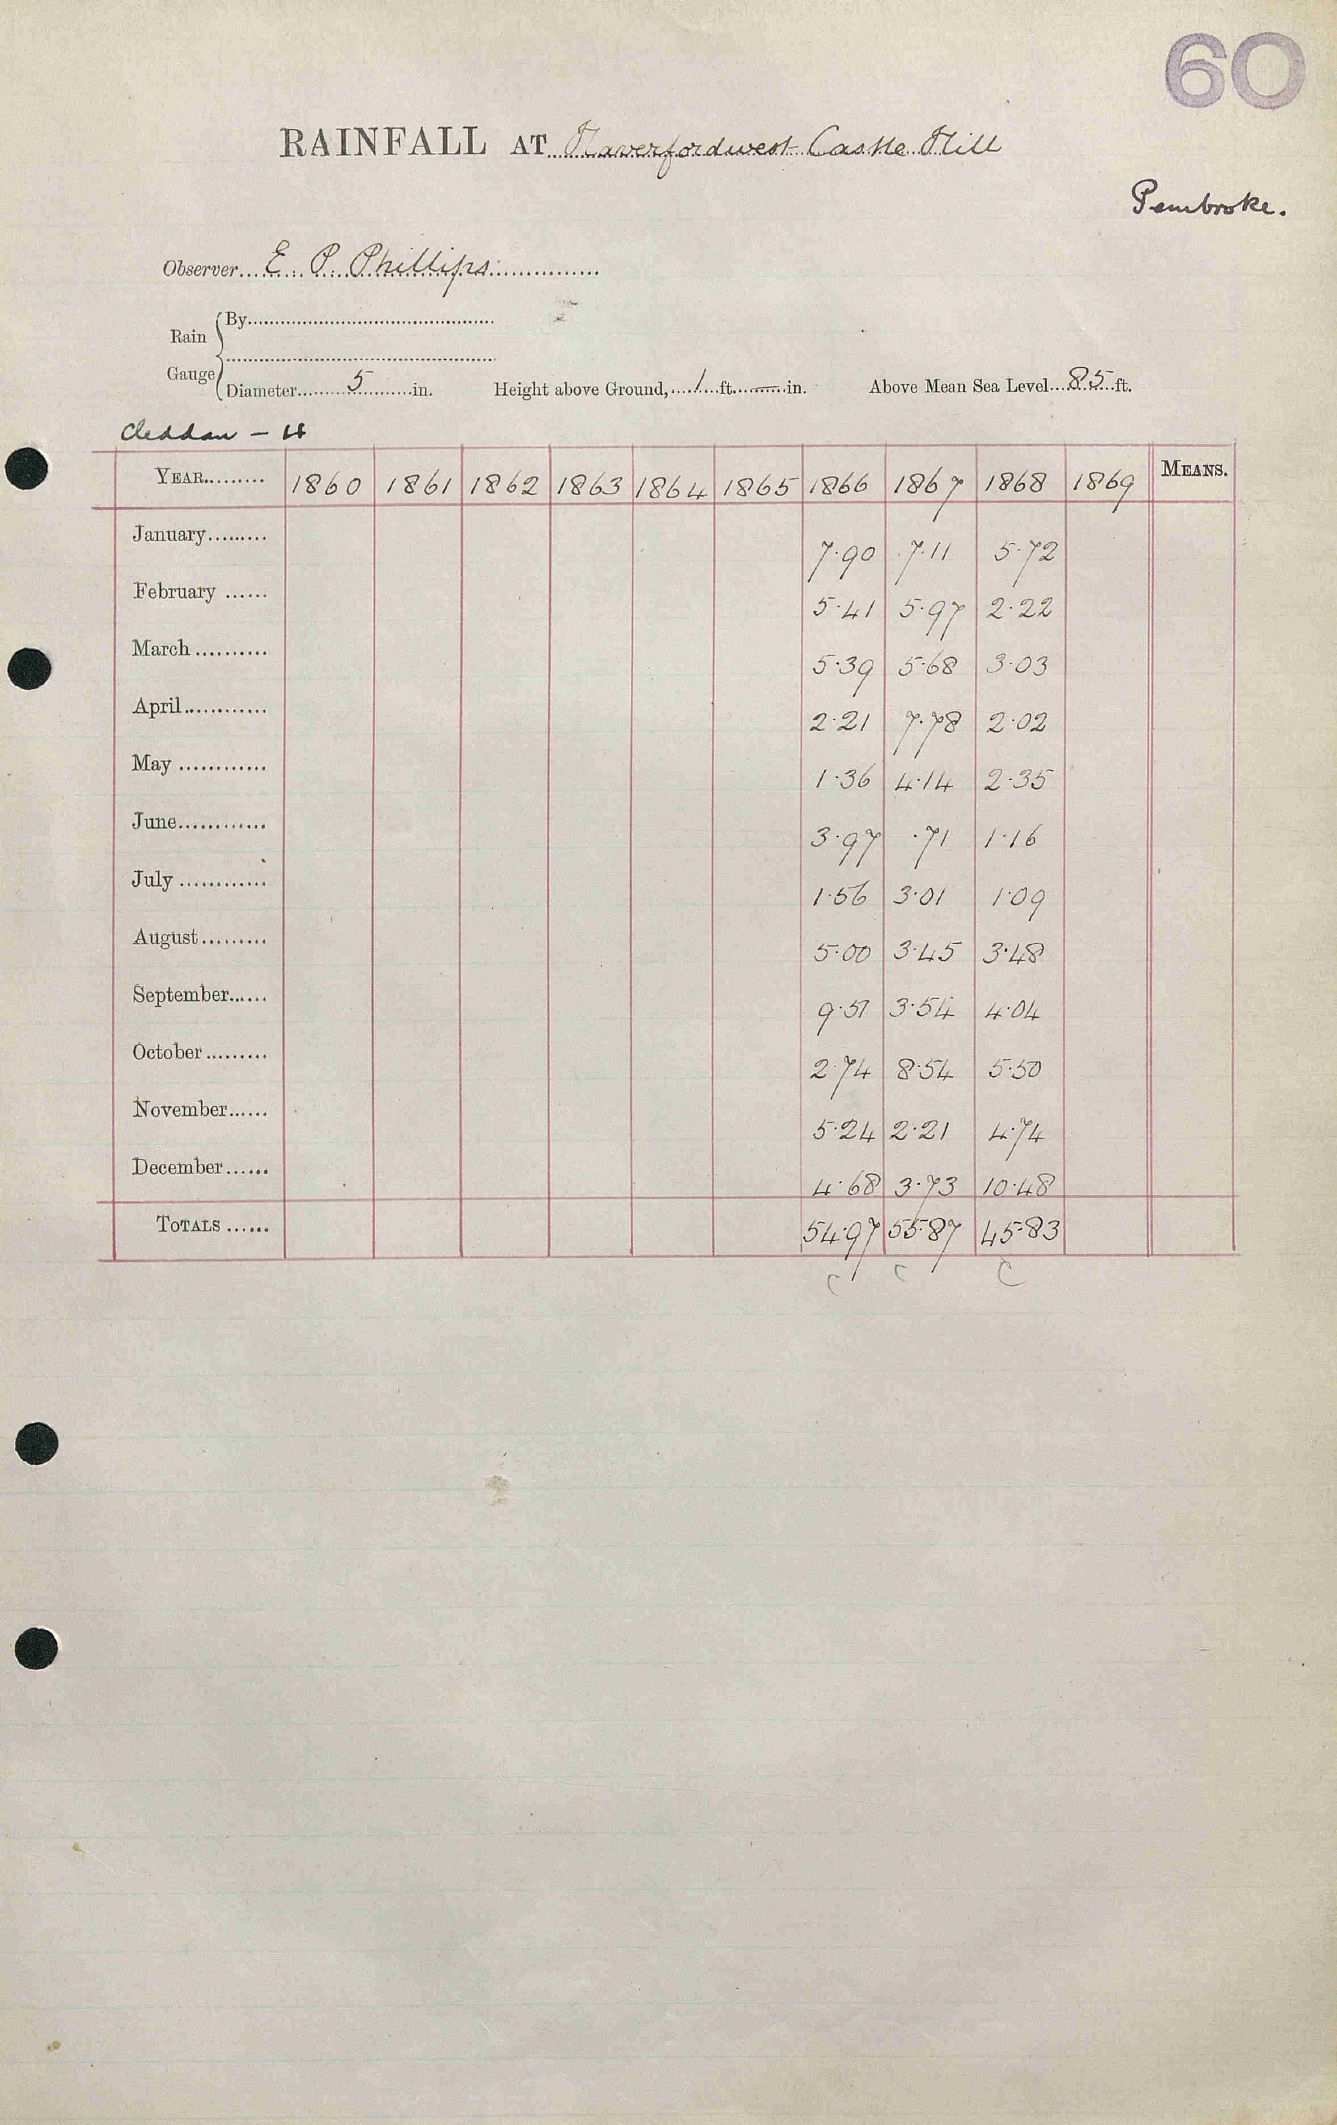 60
RAINFALL AT Haverfordwest Castle Hill
Pembroke.
Observer E. P. Phillips
Rain Gauge
By
Diameter 5 in. Height above Ground, 1 ft. — in. Above Mean Sea Level 85 ft.
Cleddau - H
YEAR 1860 1861 1862 1863 1864 1865 1866 1867 1868 1869 MEANS.
January 7·90 7·11 5·72
February 5·41 5·97 2·22
March 5·39 5·68 3·03
April 2·21 7·78 2·02
May 1·36 4·14 2·35
June 3·97 ·71 1·16
July 1·56 3·01 1·09
August 5·00 3·45 3·48
September 9·51 3·54 4·04
October 2·74 8·54 5·50
November 5·24 2·21 4·74
December 4·68 3·73 10·48
TOTALS 54·97 55·87 45·83
C C C